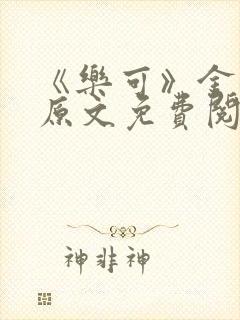 《樂可》全
原文免費閱
神非神